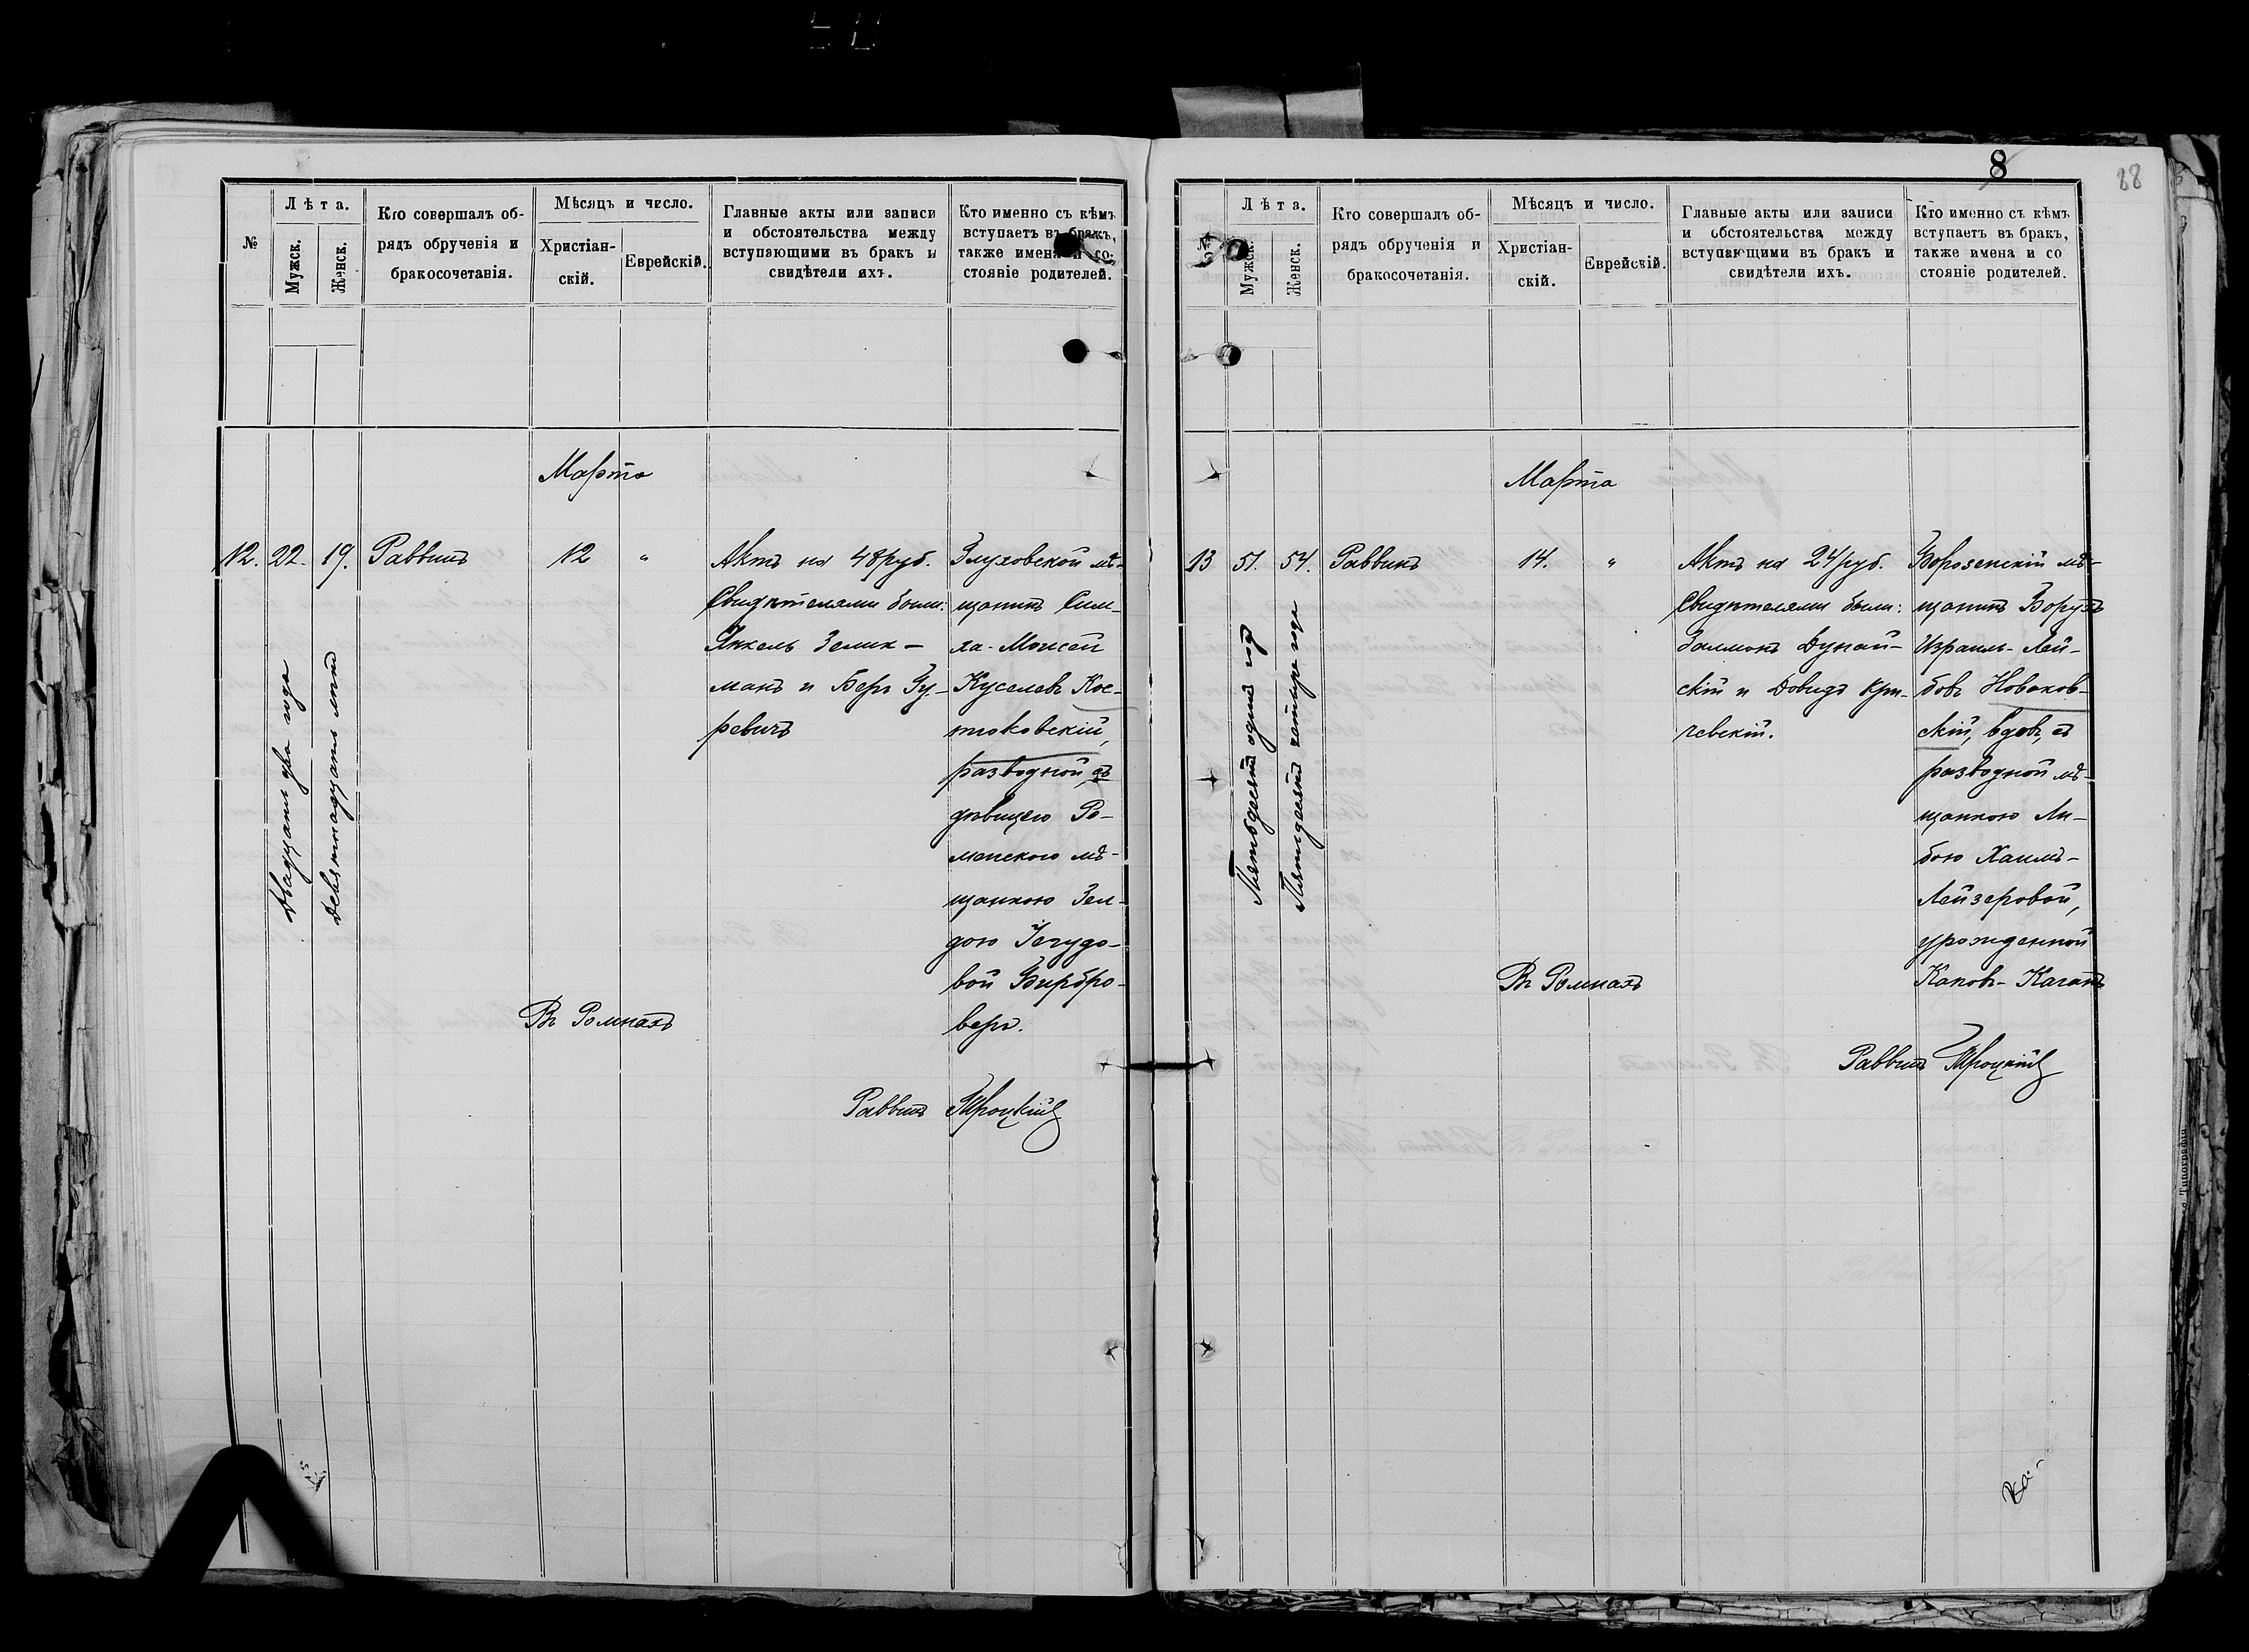 №
Лѣта.
Мужск.
Женск.
Кто совершалъ об-
рядъ обрученія и
бракосочетанія.
Мѣсяцъ и число.
Христіан-
скій.
Еврейскій.
Главные акты или записи
и обстоятельства между
вступающими въ бракъ и
свидѣтели ихъ.
Кто именно съ кѣмъ
вступаетъ въ бракъ,
также имена и со-
стояніе родителей.
Марта
12.
22.
19.
Двадцать два года
Девятнадцать лѣтъ
Раввинъ
12
"
Актъ на 48 руб.
Свидѣтелями были:
Янкель Зелик-
манъ и Беръ Гу-
ревичъ
Глуховской мѣ-
щанинъ Сим-
ха-Моисей
Куселевъ Кос-
тюковскій,
разводной, съ
дѣвицею Ро-
менскою мѣ-
щанкою Зел-
дою Іегудо-
вой Бирбро-
веръ.
Въ Ромнахъ
Раввинъ Троцкій
8
88
№
Лѣта.
Мужск.
Женск.
Кто совершалъ об-
рядъ обрученія и
бракосочетанія.
Мѣсяцъ и число.
Христіан-
скій.
Еврейскій.
Главные акты или записи
и обстоятельства между
вступающими въ бракъ и
свидѣтели ихъ.
Кто именно съ кѣмъ
вступаетъ въ бракъ,
также имена и со
стояніе родителей.
Марта
13
51.
54.
Пятьдесятъ одинъ годъ
Пятьдесятъ четыре года
Раввинъ
14.
"
Актъ на 24 руб.
Свидѣтелями были:
Залманъ Дунай-
скій и Довидъ Кри-
чевскій.
Борозенскій мѣ-
щанинъ Борухъ
Израиль-Лей-
бовъ Новаков-
скій, вдов., съ
разводной мѣ-
щанкою Ли-
бою Хаимъ-
Лейзеровой,
урожденной
Кановъ-Каганъ
Въ Ромнахъ
Раввинъ Троцкій